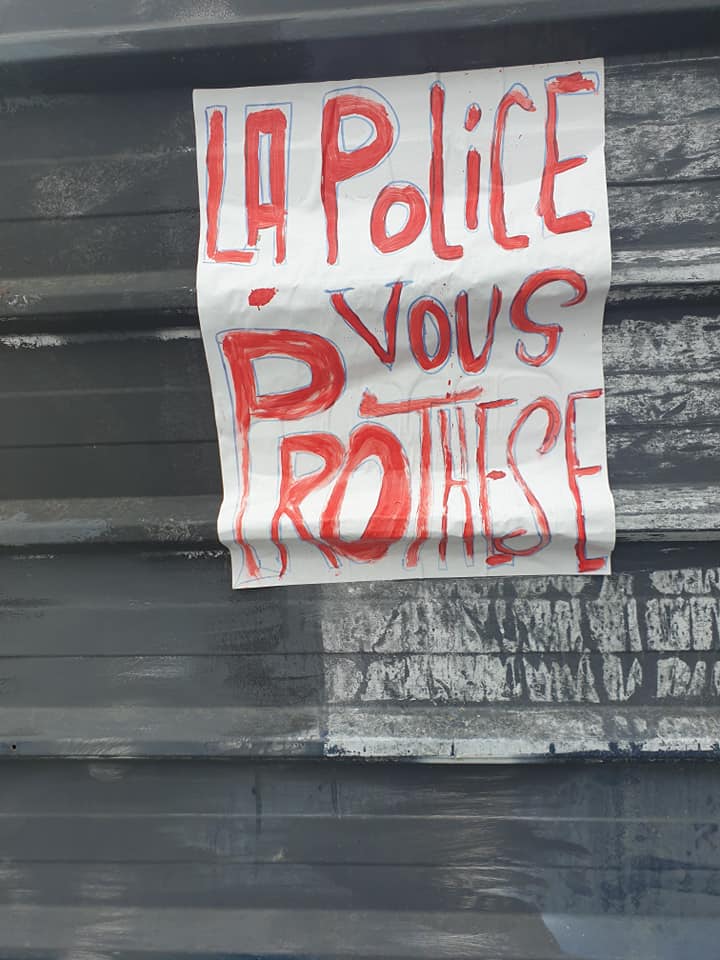 LA POLiCE
VOUS
PROTHESE